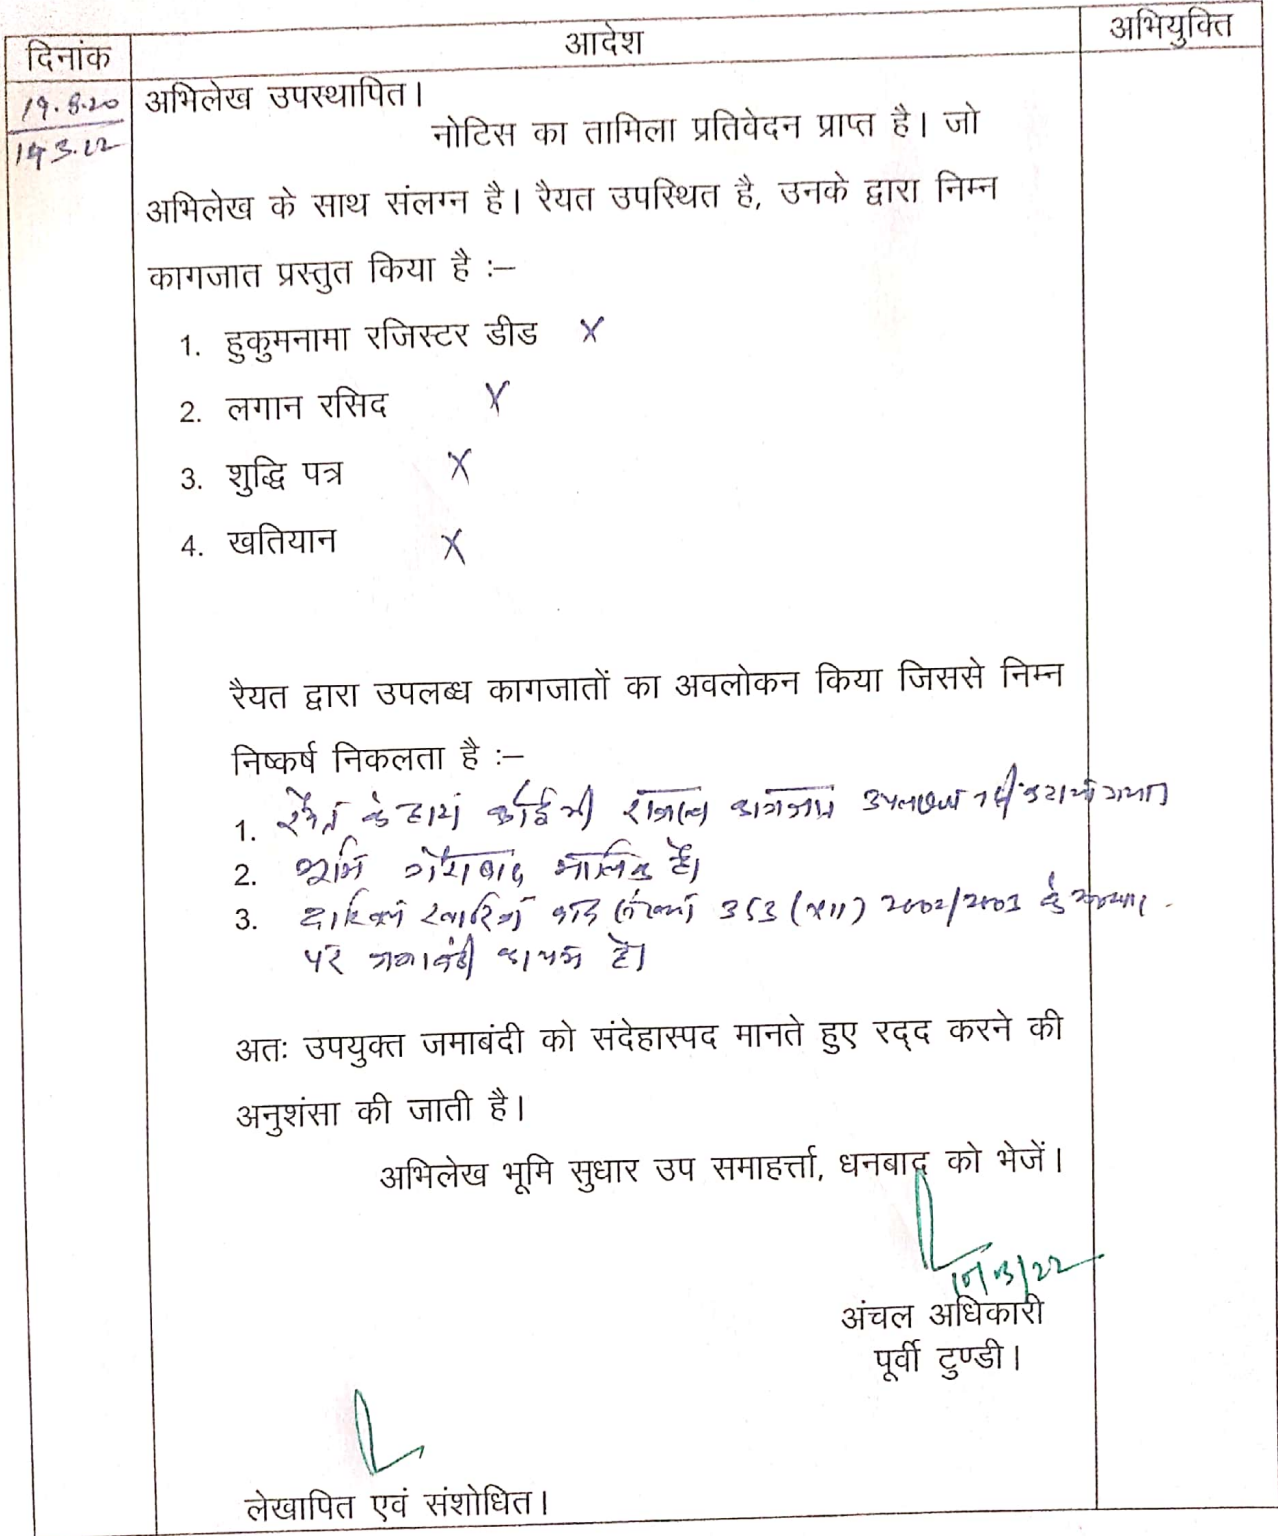 दिनांक
आदेश
अभियुक्ति
19.8.20
14.3.22
अभिलेख उपस्थापित।
नोटिस का तामिला प्रतिवेदन प्राप्त है। जो
अभिलेख के साथ संलग्न है। रैयत उपस्थित है, उनके द्वारा निम्न
कागजात प्रस्तुत किया है :–
1. हुकुमनामा रजिस्टर डीड X
2. लगान रसिद X
3. शुद्धि पत्र X
4. खतियान X
रैयत द्वारा उपलब्ध कागजातों का अवलोकन किया जिससे निम्न
निष्कर्ष निकलता है :–
1. रैयत के द्वारा कोई भी राजस्व कागजात उपलब्ध नहीं कराया गया।
2. भूमि गैराबाद मालिक है।
3. दाखिल खारिज वाद संख्या 353 (XII) 2002/2003 के आधार
पर जमाबंदी कायम है।
अतः उपयुक्त जमाबंदी को संदेहास्पद मानते हुए रद्द करने की
अनुशंसा की जाती है।
अभिलेख भूमि सुधार उप समाहर्त्ता, धनबाद को भेजें।
03/22
अंचल अधिकारी
पूर्वी टुण्डी।
लेखापित एवं संशोधित।